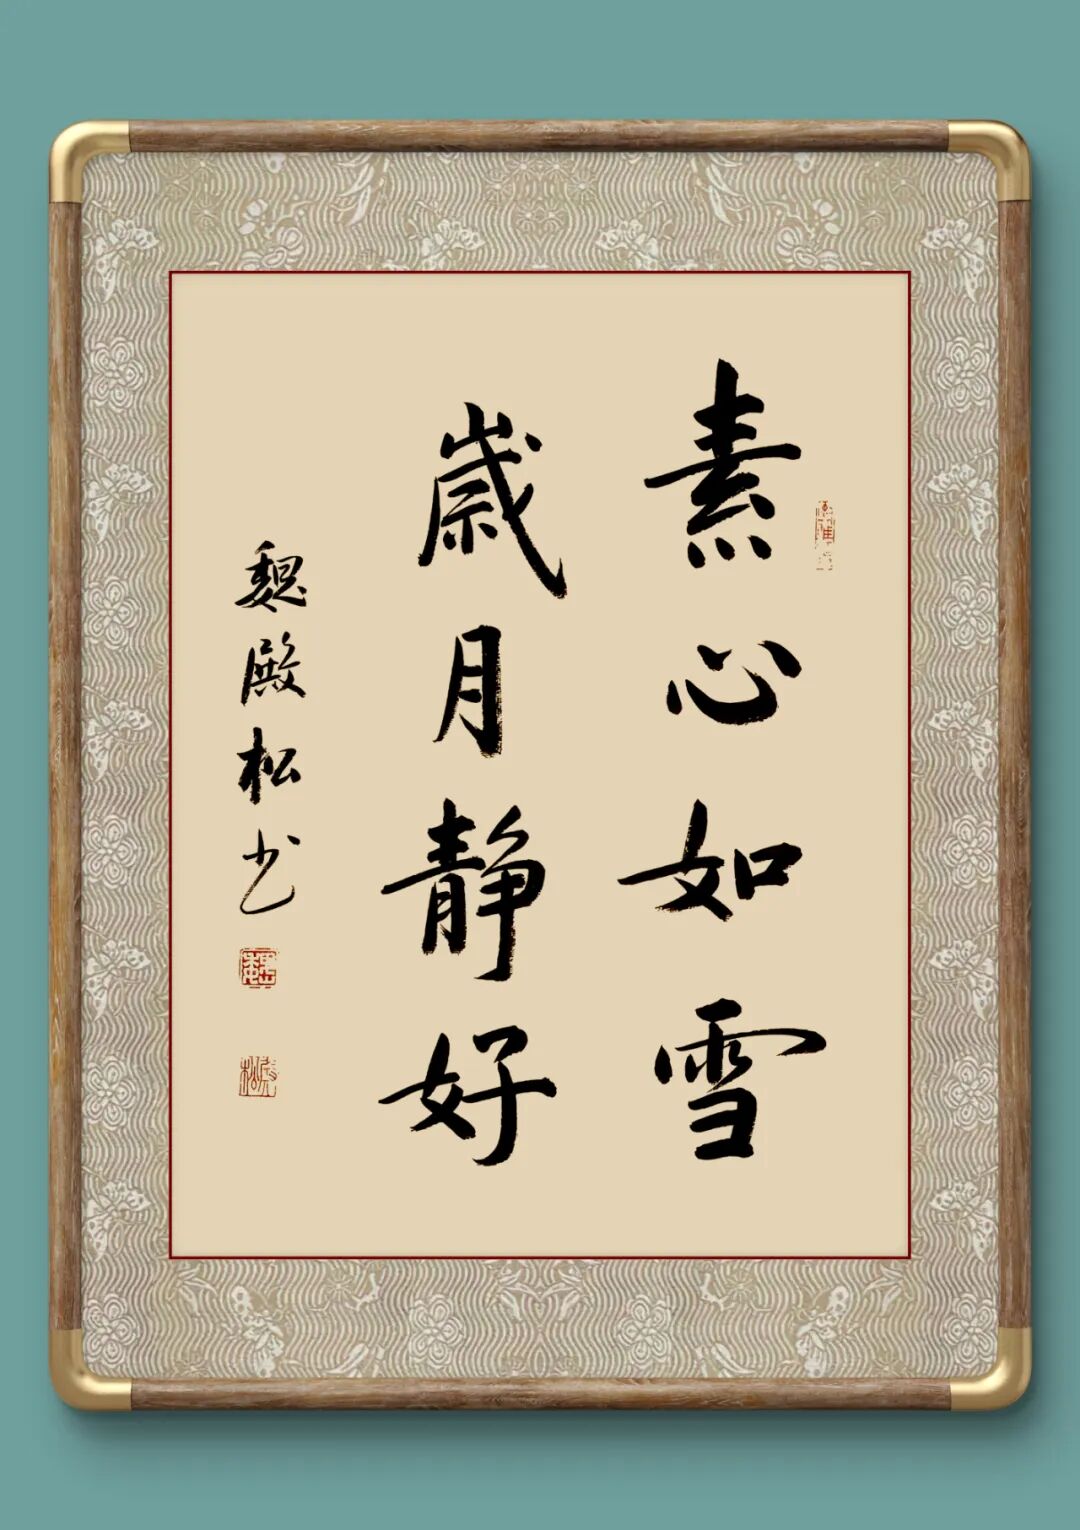 素心如雪
歲月靜好
魏殿松书